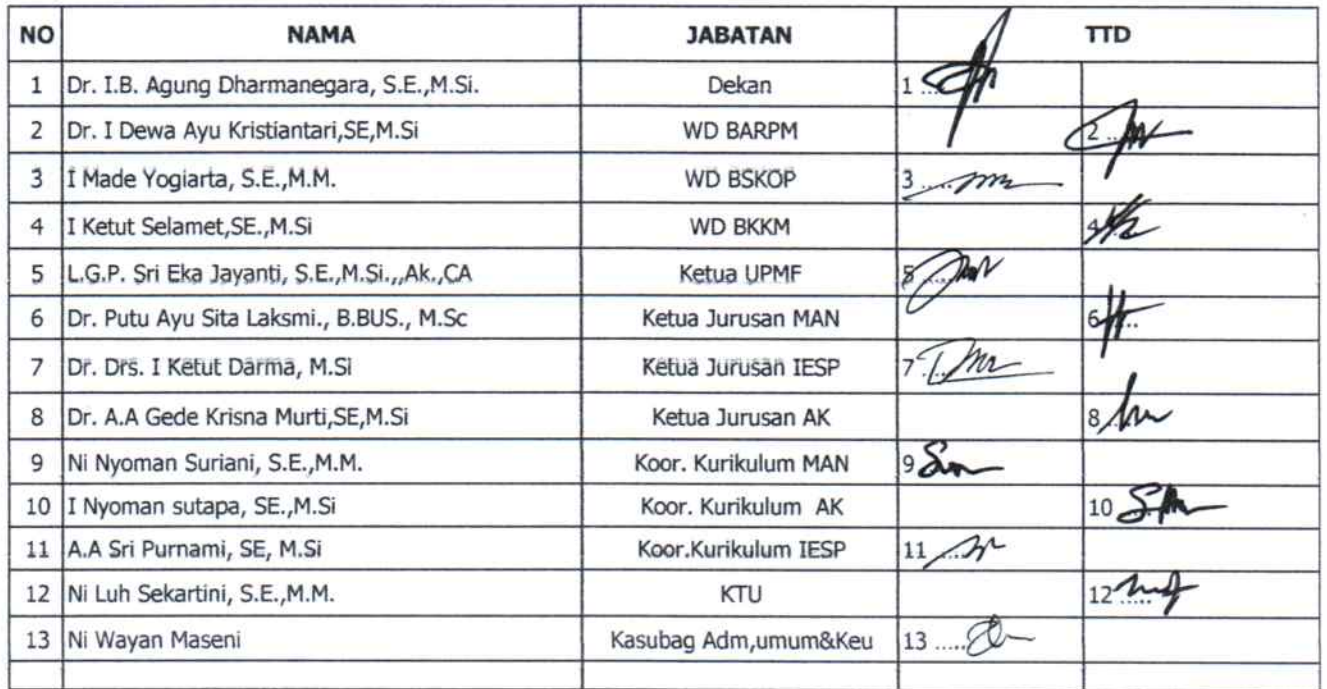 NO NAMA JABATAN TTD
1 Dr. I.B. Agung Dharmanegara, S.E.,M.Si. Dekan 1 ...
2 Dr. I Dewa Ayu Kristiantari,SE,M.Si WD BARPM 2 ...
3 I Made Yogiarta, S.E.,M.M. WD BSKOP 3 .....
4 I Ketut Selamet,SE.,M.Si WD BKKM 4 ...
5 L.G.P. Sri Eka Jayanti, S.E.,M.Si.,,Ak.,CA Ketua UPMF 5 .....
6 Dr. Putu Ayu Sita Laksmi., B.BUS., M.Sc Ketua Jurusan MAN 6 .....
7 Dr. Drs. I Ketut Darma, M.Si Ketua Jurusan IESP 7 ....
8 Dr. A.A Gede Krisna Murti,SE,M.Si Ketua Jurusan AK 8 ....
9 Ni Nyoman Suriani, S.E.,M.M. Koor. Kurikulum MAN 9
10 I Nyoman sutapa, SE.,M.Si Koor. Kurikulum AK 10 .....
11 A.A Sri Purnami, SE, M.Si Koor.Kurikulum IESP 11 .....
12 Ni Luh Sekartini, S.E.,M.M. KTU 12 .....
13 Ni Wayan Maseni Kasubag Adm,umum&Keu 13 .....